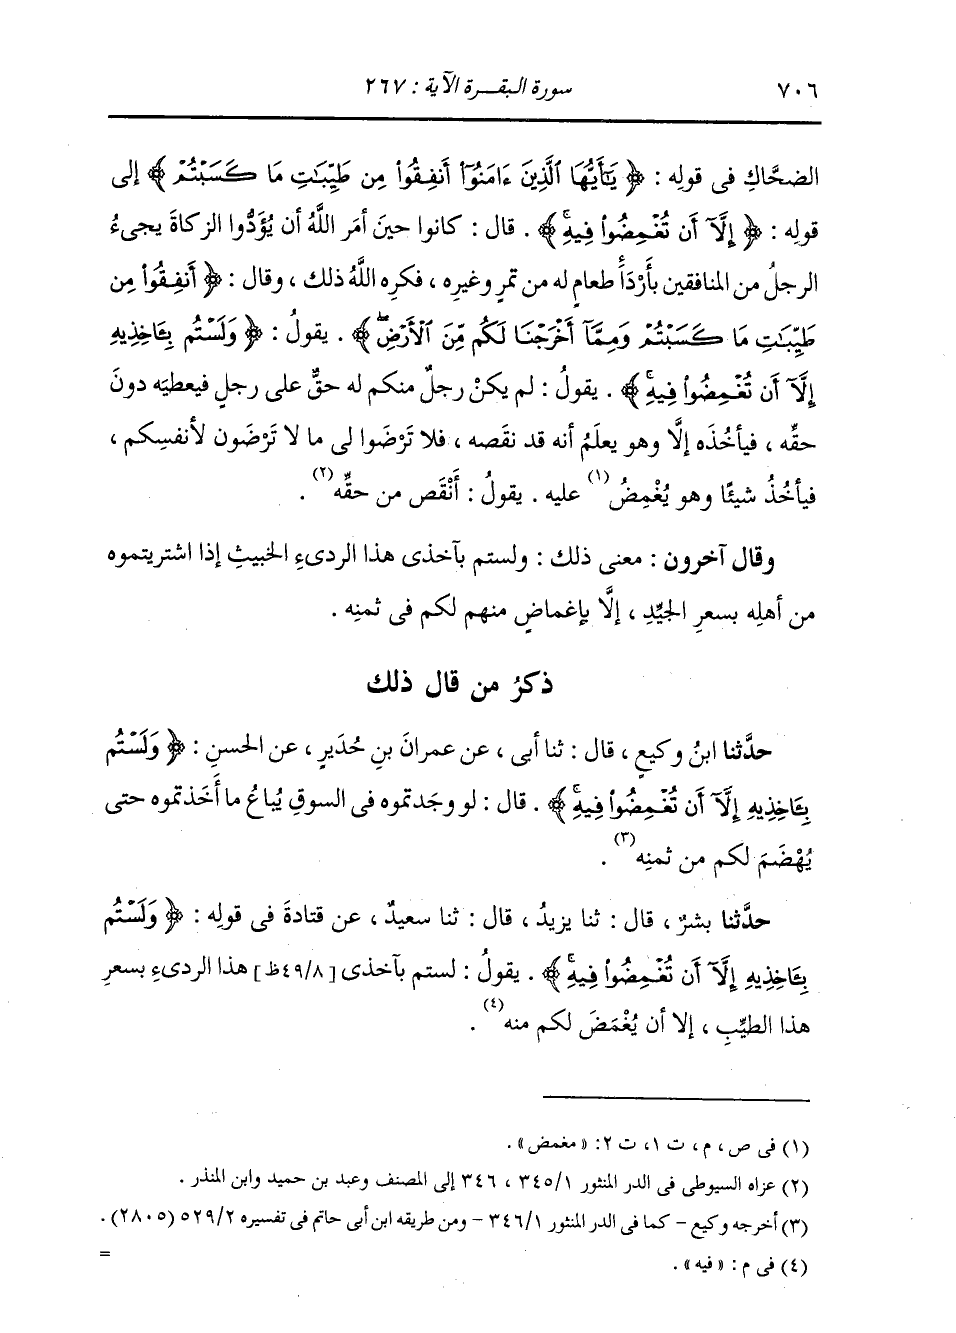 ٧٠٦ سورة البقرة الآية : ٢٦٧
الضحَّاكِ فى قولِه : ﴿ يَٰٓأَيُّهَا ٱلَّذِينَ ءَامَنُوٓا۟ أَنفِقُوا۟ مِن طَيِّبَٰتِ مَا كَسَبْتُمْ ﴾ إلى
قولِه : ﴿ إِلَّآ أَن تُغْمِضُوا۟ فِيهِ ﴾ . قال : كانوا حينَ أمَر اللَّهُ أن يُؤَدُّوا الزكاةَ يجىءُ
الرجلُ من المنافقين بأَرْدَأَ طعامٍ له من تمرٍ وغيرِه ، فكرِه اللَّهُ ذلك ، وقال : ﴿ أَنفِقُوا۟ مِن
طَيِّبَٰتِ مَا كَسَبْتُمْ وَمِمَّآ أَخْرَجْنَا لَكُم مِّنَ ٱلْأَرْضِ ﴾ . يقولُ : ﴿ وَلَسْتُم بِـَٔاخِذِيهِ
إِلَّآ أَن تُغْمِضُوا۟ فِيهِ ﴾ . يقولُ : لم يكنْ رجلٌ منكم له حقٌّ على رجلٍ فيعطيَه دونَ
حقِّه ، فيأخُذَه إلَّا وهو يعلَمُ أنه قد نقَصه ، فلا تَرْضَوا لى ما لا تَرْضَون لأنفسِكم ،
فيأخُذُ شيئًا وهو يُغْمِضُ(١) عليه . يقولُ : أَنْقَص من حقِّه(٢) .
وقال آخرون : معنى ذلك : ولستم بآخذى هذا الردىءِ الخبيثِ إذا اشتريتموه
من أهلِه بسعرِ الجيِّدِ ، إلَّا بإغماضٍ منهم لكم فى ثمنِه .
ذكرُ من قال ذلك
حدَّثنا ابنُ وكيعٍ ، قال : ثنا أبى ، عن عمرانَ بنِ حُدَيرٍ ، عن الحسنِ : ﴿ وَلَسْتُم
بِـَٔاخِذِيهِ إِلَّآ أَن تُغْمِضُوا۟ فِيهِ ﴾ . قال : لو وجَدتموه فى السوقِ يُباعُ ما أَخَذتموه حتى
يُهْضَمَ لكم من ثمنِه(٣) .
حدَّثنا بشرٌ ، قال : ثنا يزيدُ ، قال : ثنا سعيدٌ ، عن قتادةَ فى قولِه : ﴿ وَلَسْتُم
بِـَٔاخِذِيهِ إِلَّآ أَن تُغْمِضُوا۟ فِيهِ ﴾ . يقولُ : لستم بآخذى [ ٤٩/٨ظ ] هذا الردىءِ بسعرِ
هذا الطيِّبِ ، إلا أن يُغْمَضَ لكم منه(٤) .
(١) فى ص ، م ، ت ١، ت ٢: « مغمض » .
(٢) عزاه السيوطى فى الدر المنثور ٣٤٥/١ ، ٣٤٦ إلى المصنف وعبد بن حميد وابن المنذر .
(٣) أخرجه وكيع - كما فى الدر المنثور ٣٤٦/١ - ومن طريقه ابن أبى حاتم فى تفسيره ٥٢٩/٢ (٢٨٠٥) .
(٤) فى م : « فيه » .
=